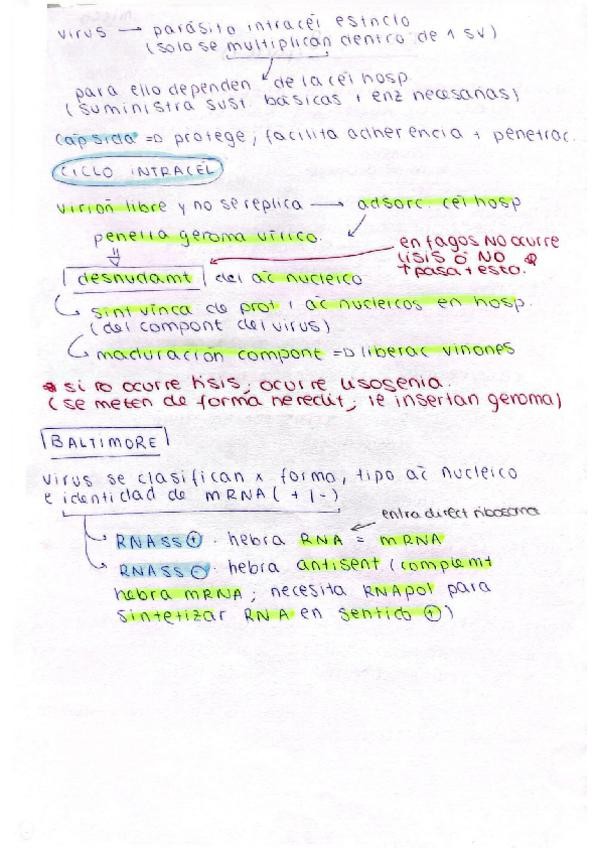 virus → parásito intracél estricto
(solo se multiplican dentro de 1 sv)
para ello dependen de la cél hosp
(suministra sust. básicas + enz necesarias)
cápsida => protege; facilita adherencia + penetrac.
CICLO INTRACÉL
virión libre y no se replica → adsorc. cél hosp
penetra genoma vírico.
en fagos NO ocurre
lisis ó NO
+ pasa + esto.
desnudamt del ac nucleico
sint vírica de prot + ac nucleicos en hosp.
(del compont del virus)
maduración compont => liberac viriones
* si no ocurre lisis; ocurre lisogenia.
(se meten de forma heredit; le insertan genoma)
BALTIMORE
virus se clasifican x forma, tipo ac nucleico
e identidad de mRNA (+/-)
entra direct ribosoma
RNASS⊕ · hebra RNA = mRNA
RNASS⊖ · hebra antisent (complemt
hebra mRNA; necesita RNApol para
sintetizar RNA en sentido ⊕)